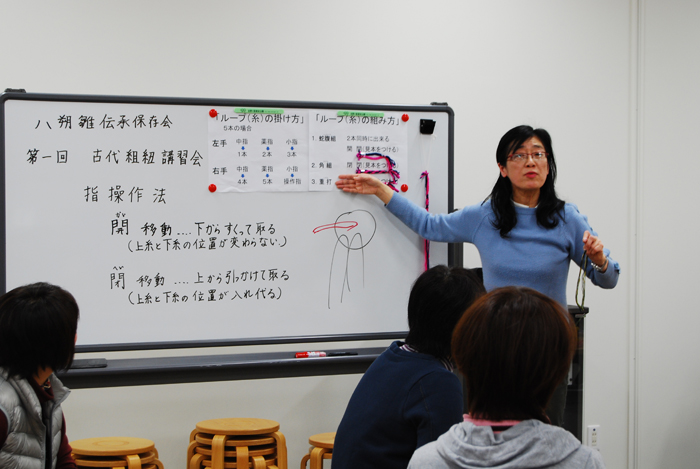 八朔雛伝承保存会
第一回 古代組紐講習会
指操作法
ガイ
開 移動‥‥下からすくって取る
(上糸と下糸の位置が変わらない)
ペイ
閉 移動‥‥上から引っかけて取る
(上糸と下糸の位置が入れ代る)
「ループ(糸)の掛け方」
5本の場合
左手 中指 薬指 小指
1本 2本 3本
右手 中指 薬指 小指
4本 5本 操作指
「ループ(糸)の組み方」
1. 蛇腹組 2本同時に出来る
開 閉 (見本をつける)
2. 角組
開 開 (見本をつける)
3.